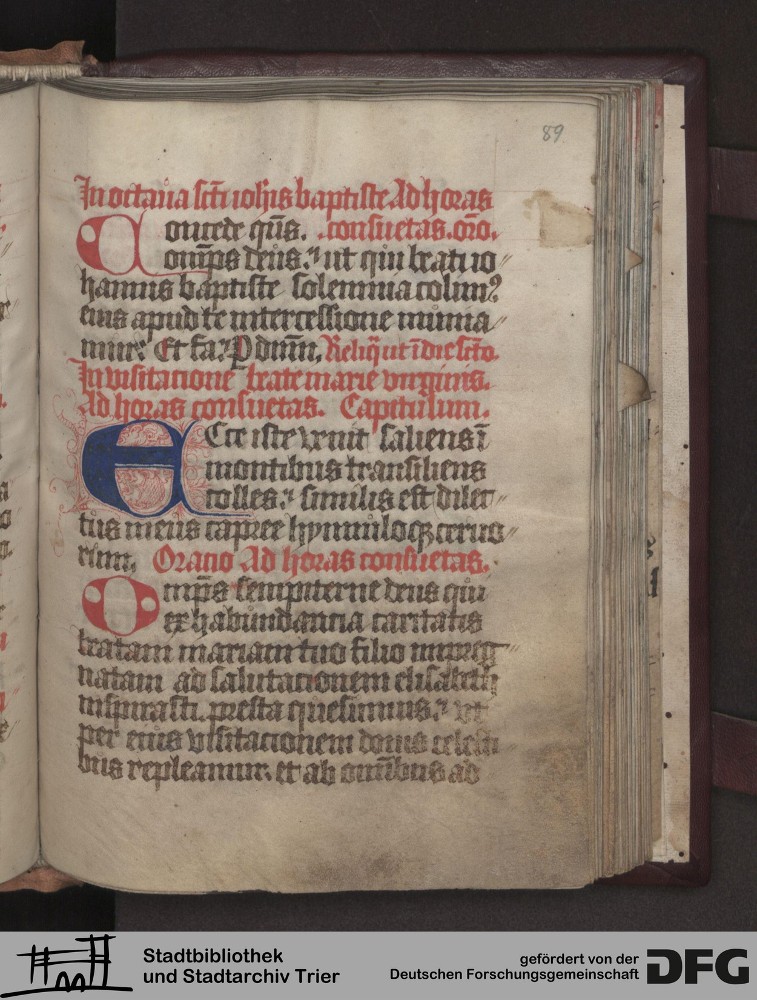 89
In octaua scti iohis baptiste Ad horas
Concede qs. consuetas. oro.
omps deus. ut qui beati io
hannis baptiste solennia colim⁹
eius apud te intercessione munia
mur. Et fa. P dnm. Reliq̄ ut ī die scto.
In visitacione beate marie virginis.
Ad horas consuetas. Capitulum.
Ecce iste venit saliens ī
montibus transiliens
colles. similis est dilec
tus meus capree hynnuloqꝫ ceruo
rum. Oracio Ad horas consuetas.
Omps sempiterne deus qui
ex habundancia caritatis
beatam mariam tuo filio impreg
natam ad salutacionem elisabeth
inspirasti. presta quesumus. vt
per eius visitacionem donis celesti
bus repleamur. et ab omībus ad
Stadtbibliothek
und Stadtarchiv Trier
gefördert von der
Deutschen Forschungsgemeinschaft
DFG